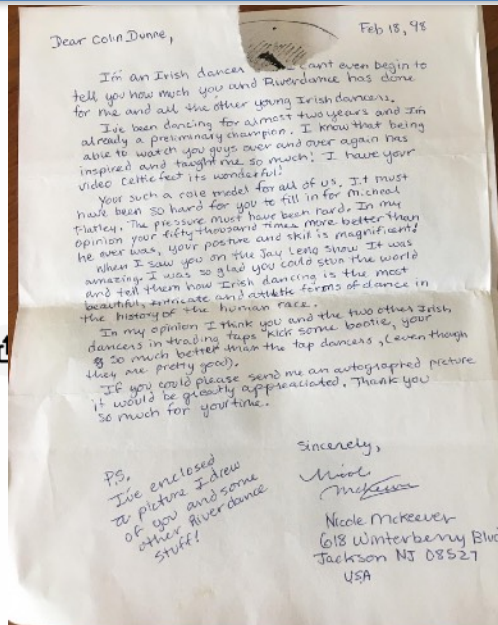 Feb 18, 98
Dear Colin Dunne,
I'm an Irish dancer cant even begin to
tell you how much you and Riverdance has done
for me and all the other young Irish dancers.
I've been dancing for almost two years and I'm
already a preliminary champion. I know that being
able to watch you guys over and over again has
inspired and taught me so much! I have your
video Celtic feet its wonderful!
Your such a role model for all of us. It must
have been so hard for you to fill in for Micheal
Flatley. The pressure must have been hard. In my
opinion your fifty thousand times more better than
he ever was, your posture and skill is magnificent!
When I saw you on the Jay Leno Show It was
amazing. I was so glad you could stun the world
and tell them how Irish dancing is the most
beautiful, intricate and athletic forms of dance in
the history of the human race.
In my opinion I think you and the two other Irish
dancers in trading taps kick some bootie, your
so much better than the tap dancers, (even though
they are pretty good).
If you could please send me an autographed picture
it would be greatly appreaciated. Thank you
so much for your time.
Sincerely,
Nicole
McKeever
P.S.
I've enclosed
a picture I drew
of you and some
other Riverdance
stuff!
Nicole McKeever
618 Winterberry Blvd
Jackson NJ 08527
USA